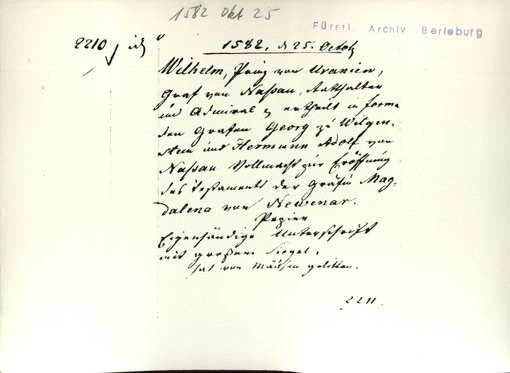 1582 Okt 25
Fürstl. Archiv Berleburg
2210
1582, d 25. Octob
Wilhelm, Prinz von Uranien,
Graf von Nassau, Statthalter
und Admiral ertheilt in forma
den Grafen Georg zu Witgen-
stein und Hermann Adolf von
Nassau Vollmacht zur Eröffnung
des Testaments der Gräfin Mag-
dalena von Newenar.
Papier
Eigenhändige Unterschrift
mit großem Siegel,
hat von Mäusen gelitten.
2211.